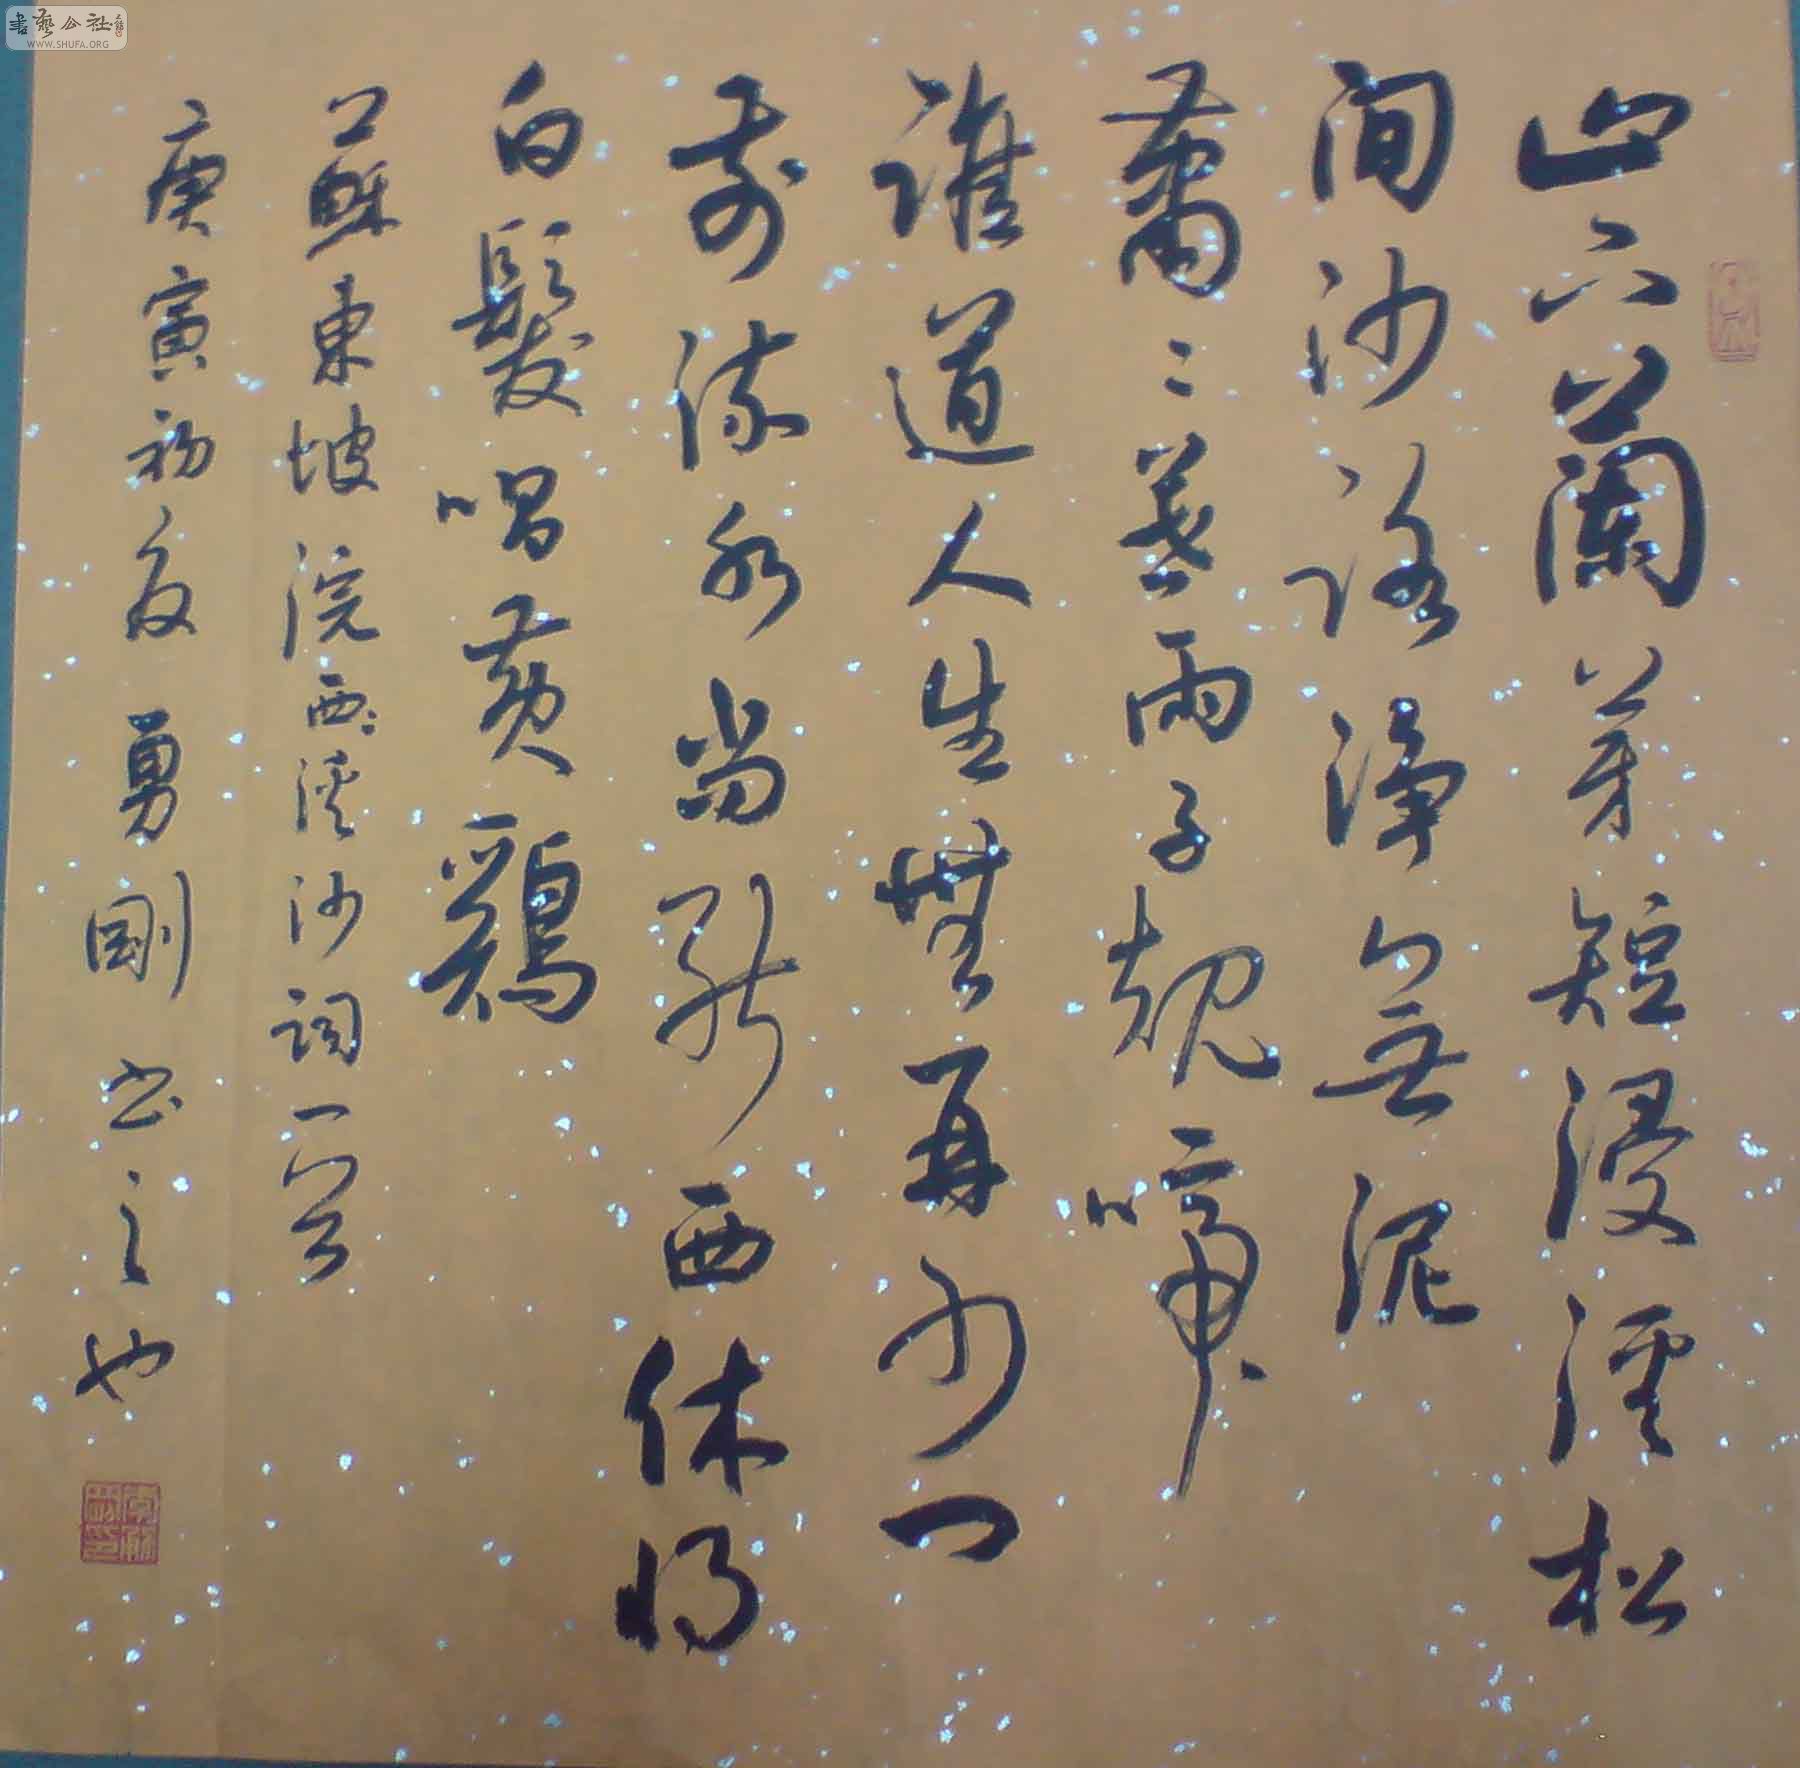 山下蘭芽短浸溪松
間沙路淨無泥
蕭〻暮雨子規啼
誰道人生無再少門
前流水尚能西休將
白髮唱黃鷄
蘇東坡浣西〻溪沙詞一首
庚寅初夏勇剛書之也
書藝公社
WWW.SHUFA.ORG